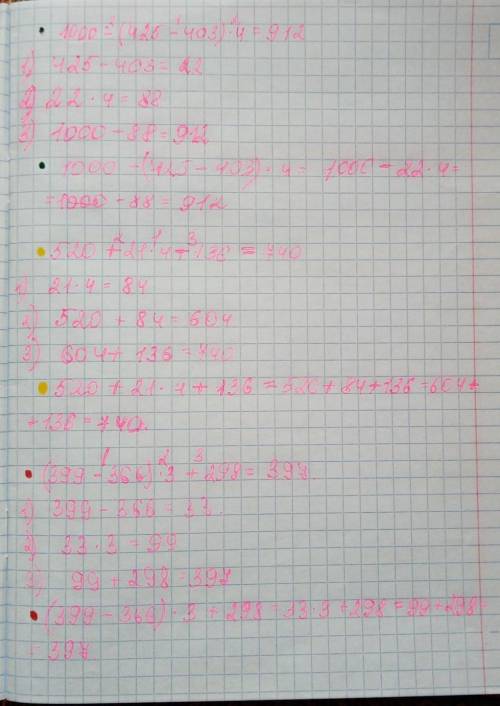 1000 - (425 - 403) · 4 = 912
1) 425 - 403 = 22
2) 22 · 4 = 88
3) 1000 - 88 = 912
1000 - (425 - 403) · 4 = 1000 - 22 · 4 =
= 1000 - 88 = 912
520 + 21 · 4 + 136 = 740
1) 21 · 4 = 84
2) 520 + 84 = 604
3) 604 + 136 = 740
520 + 21 · 4 + 136 = 520 + 84 + 136 = 604 +
+ 136 = 740.
(399 - 366) · 3 + 298 = 397.
1) 399 - 366 = 33.
2) 33 · 3 = 99
3) 99 + 298 = 397
(399 - 366) · 3 + 298 = 33 · 3 + 298 = 99 + 298 =
= 397